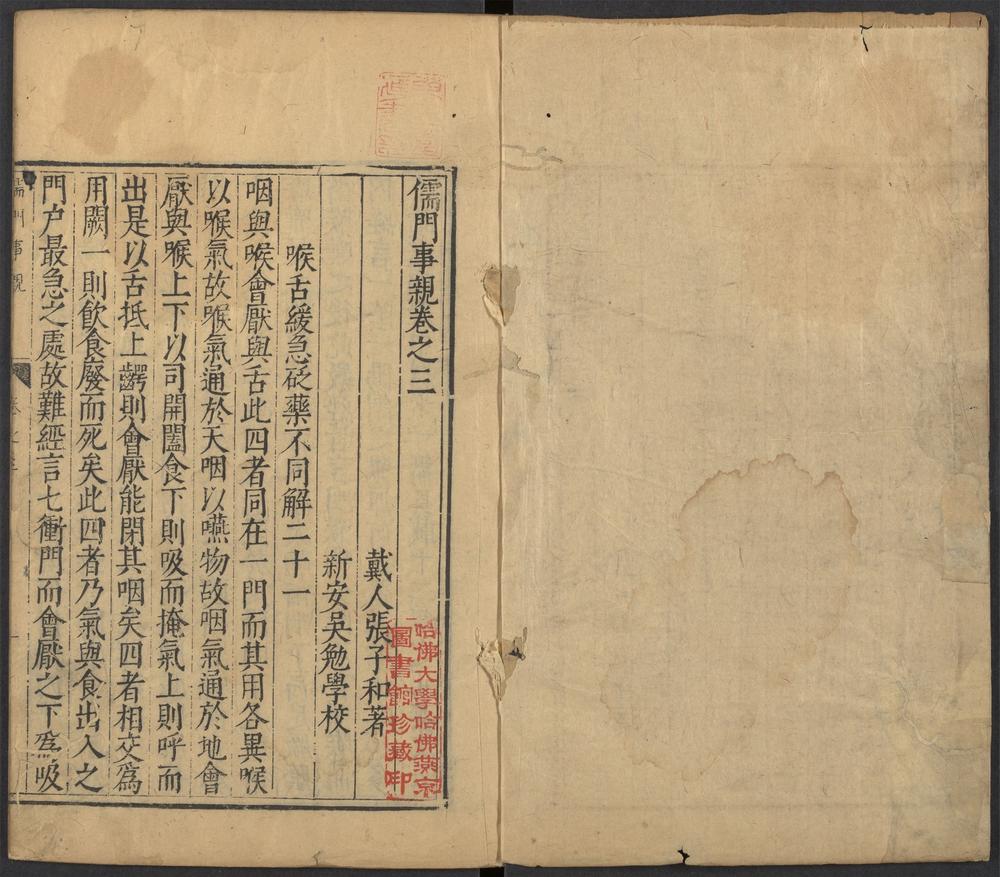 儒門事親卷之三
戴人張子和著
新安吳勉學校
喉舌緩急砭藥不同解二十一
咽與喉會厭與舌此四者同在一門而其用各異喉
以喉氣故喉氣通於天咽以嚥物故咽氣通於地會
厭與喉上下以司開闔食下則吸而掩氣上則呼而
出是以舌抵上齶則會厭能閉其咽矣四者相交爲
用闕一則飲食廢而死矣此四者乃氣與食出入之
門戶最急之處故難經言七衝門而會厭之下爲吸
儒門事親
哈佛大學哈佛燕京
圖書館珍藏印